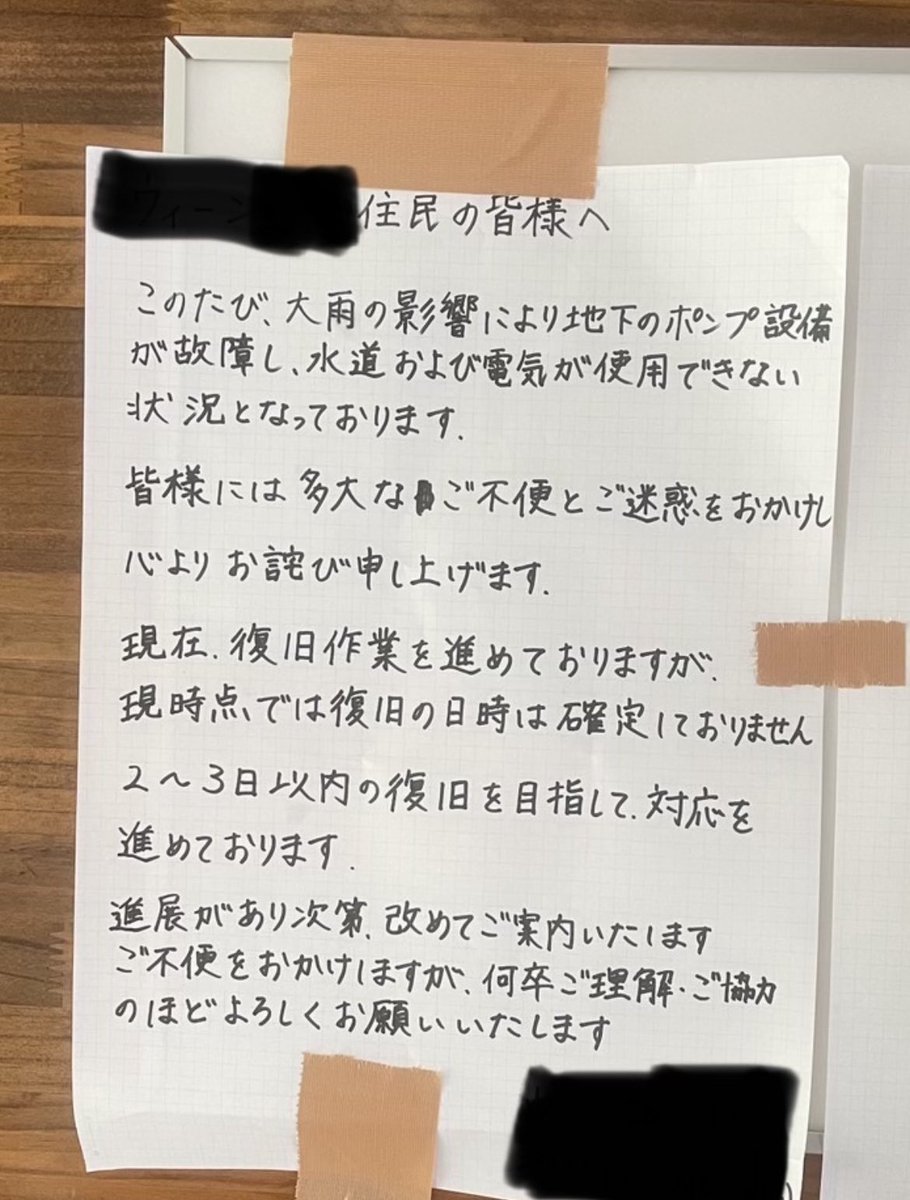 住民の皆様へ
このたび、大雨の影響により地下のポンプ設備
が故障し、水道および電気が使用できない
状況となっております.
皆様には多大なご不便とご迷惑をおかけし
心よりお詫び申し上げます.
現在、復旧作業を進めておりますが、
現時点では復旧の日時は確定しておりません
2〜3日以内の復旧を目指して、対応を
進めております.
進展があり次第、改めてご案内いたします
ご不便をおかけしますが、何卒ご理解・ご協力
のほどよろしくお願いいたします